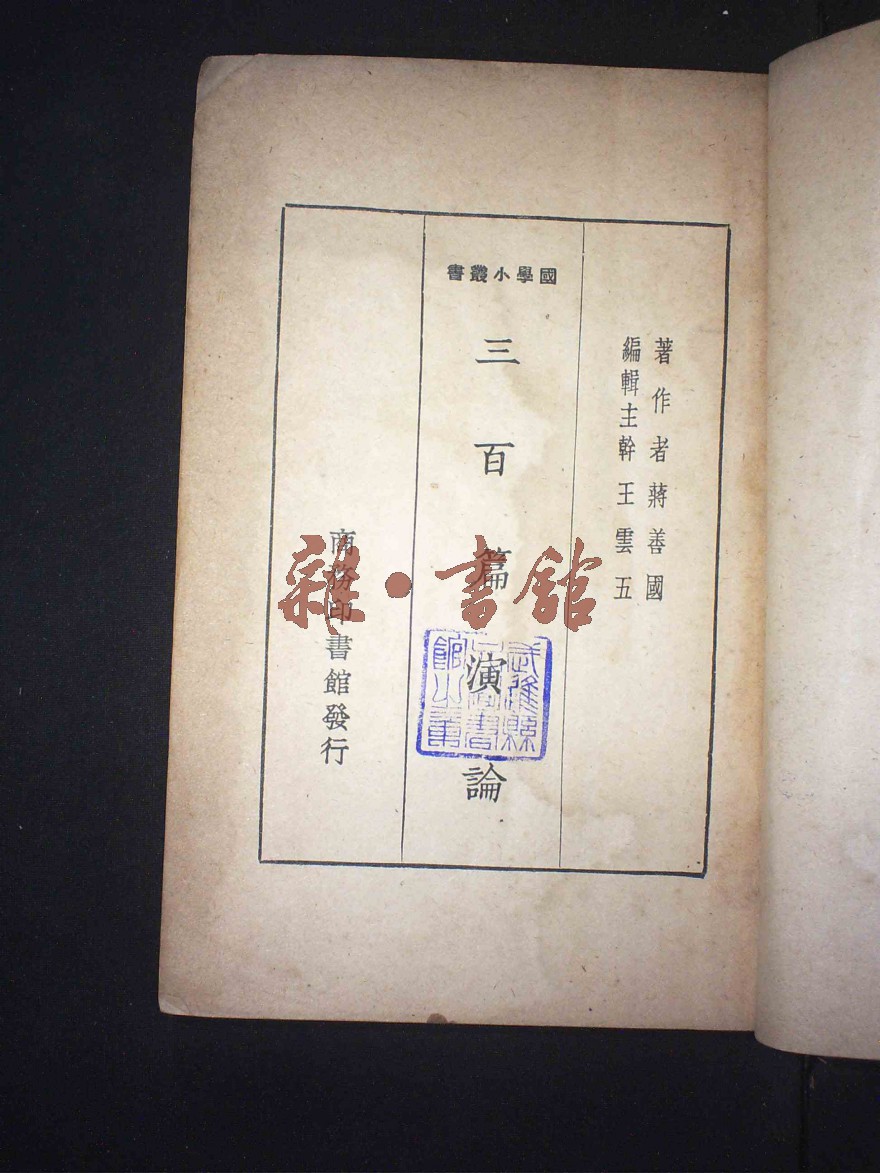 著作者蔣善國
編輯主幹王雲五
國學小叢書
三百篇演論
商務印書館發行
雜·書館
武進縣圖書館之章